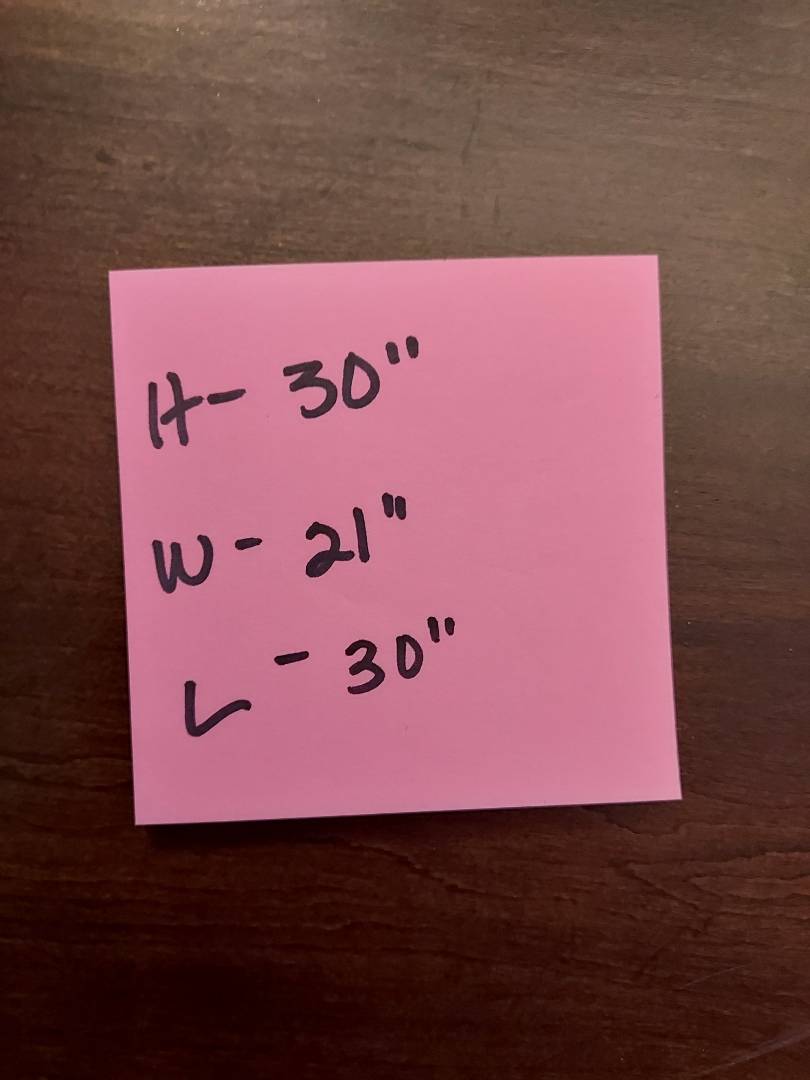 H- 30"
W- 21"
L- 30"